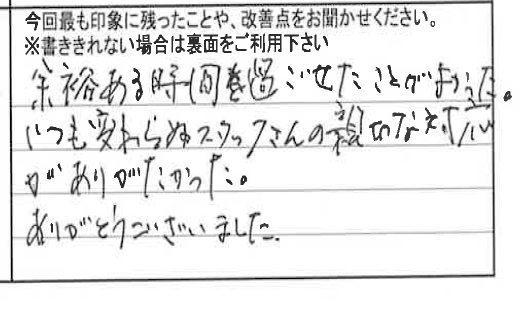 今回最も印象に残ったことや、改善点をお聞かせください。
※書ききれない場合は裏面をご利用下さい
余裕ある時間を過ごせたことがよかった。
いつも変わらぬスタッフさんの親切な対応
がありがたかった。
ありがとうございました.